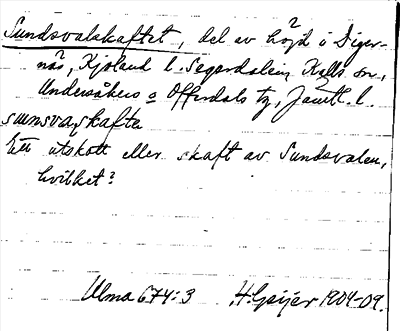 Sundsvalskaftet, del av höjd i Diger-
näs, Kjoland l. Segerdalein Kalls sn,
Undersåkers o Offerdals tg, Jämtl. l.
sunsvarskafte
Ett utskott eller skaft av Sundsvalen,
hvilket?
Ulma 674:3 H. Geijer 1904-09.